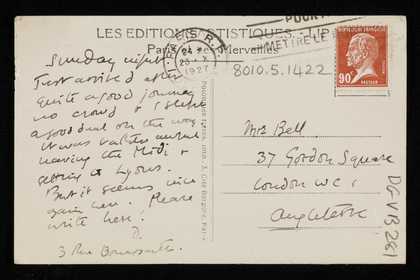 LES EDITIONS ARTISTIQUES
Paris et ses Merveilles
R.F.
24
23 X
1927
POUR
METTRE LE
RÉPUBLIQUE FRANÇAISE
90c
PASTEUR
8010.5.1422
Sunday night
Just arrived after
quite a good journey
no crowd & I slept
a good deal on the way
It was rather awful
leaving the Midi &
getting to Lyons.
But it seems nice
again here. Please
write here.
D.
3 Rue Bonaparte.
Mrs Bell
37 Gordon Square
London WC1
Angleterre
DG VB 281